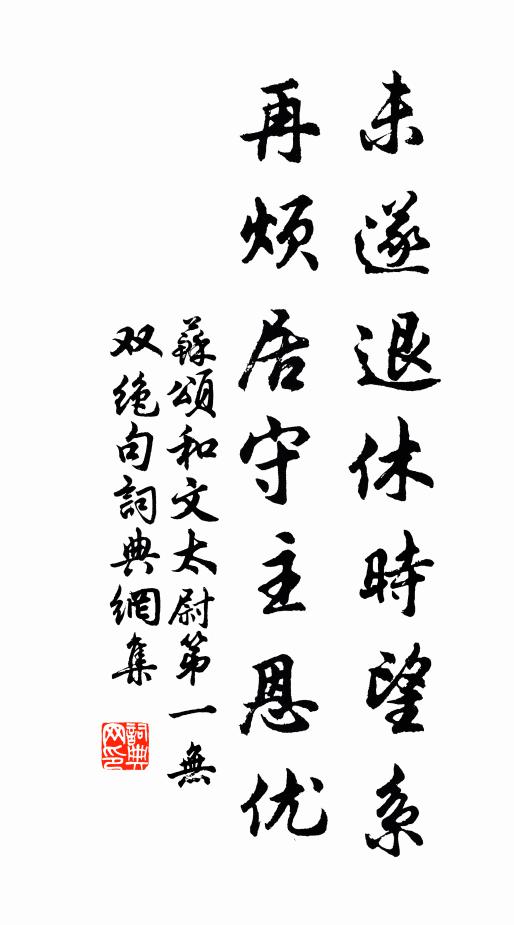 未遂退休時望系
再烦居守主恩优
蘇頌和文太尉第一無
双絶句詞典網集
詞典网印